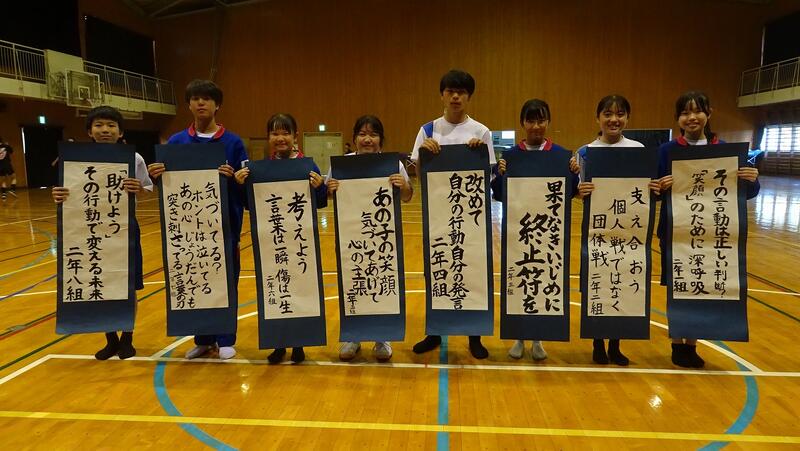 その言動は正しい判断?
「笑顔」のために深呼吸
二年一組
支え合おう
個人戦ではなく
団体戦
二年二組
果てなきいじめに
終止符を
二年三組
改めて
自分の行動自分の発言
二年四組
あの子の笑顔
気づいてあげて
心の主張
二年五組
考えよう
言葉は一瞬 傷は一生
二年六組
気づいてる?
ホントは泣いてる
あの心 じょうだんでも
突き刺さってる言葉の刃
「助けよう」
その行動で変える未来
二年八組